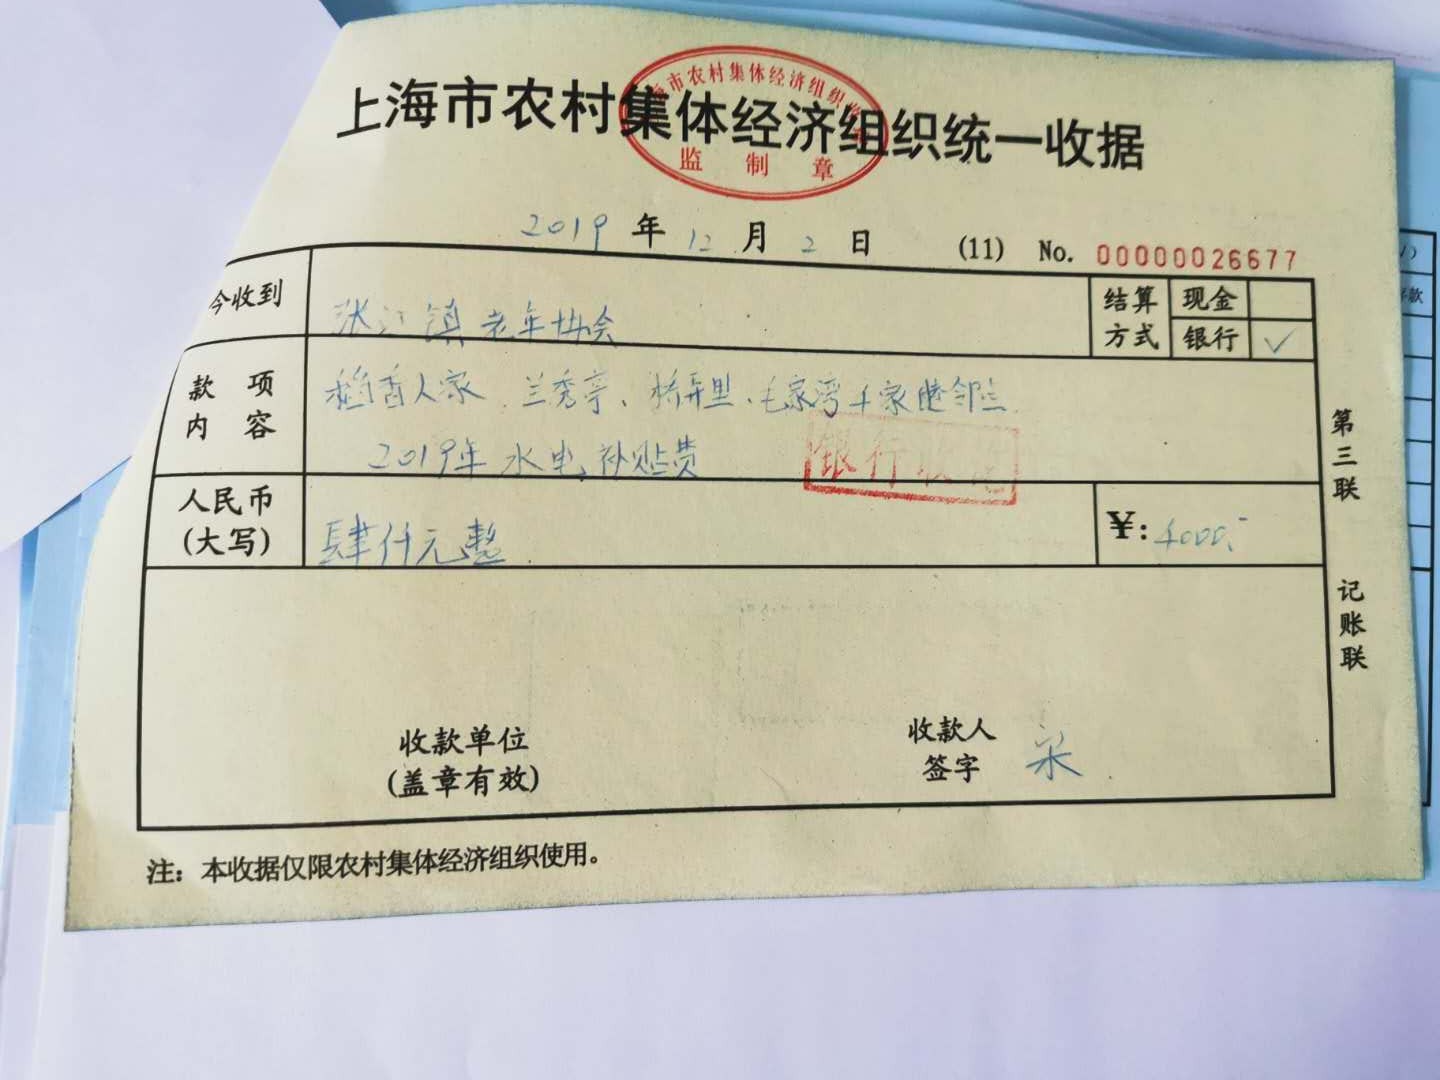 上海市农村集体经济组织统一收据
市农村集体经济组织
监制章
2019年12月2日 (11) No. 00000026677
今收到 张江镇老年协会 结算方式 现金
银行 ✓
款项内容 稻香人家、兰秀亭、桥弄里、毛家湾4家睦邻点
2019年水电补贴费
银行收讫
人民币(大写) 肆仟元整 ¥:4000.-
第三联
记账联
收款单位
(盖章有效)
收款人
签字
注：本收据仅限农村集体经济组织使用。